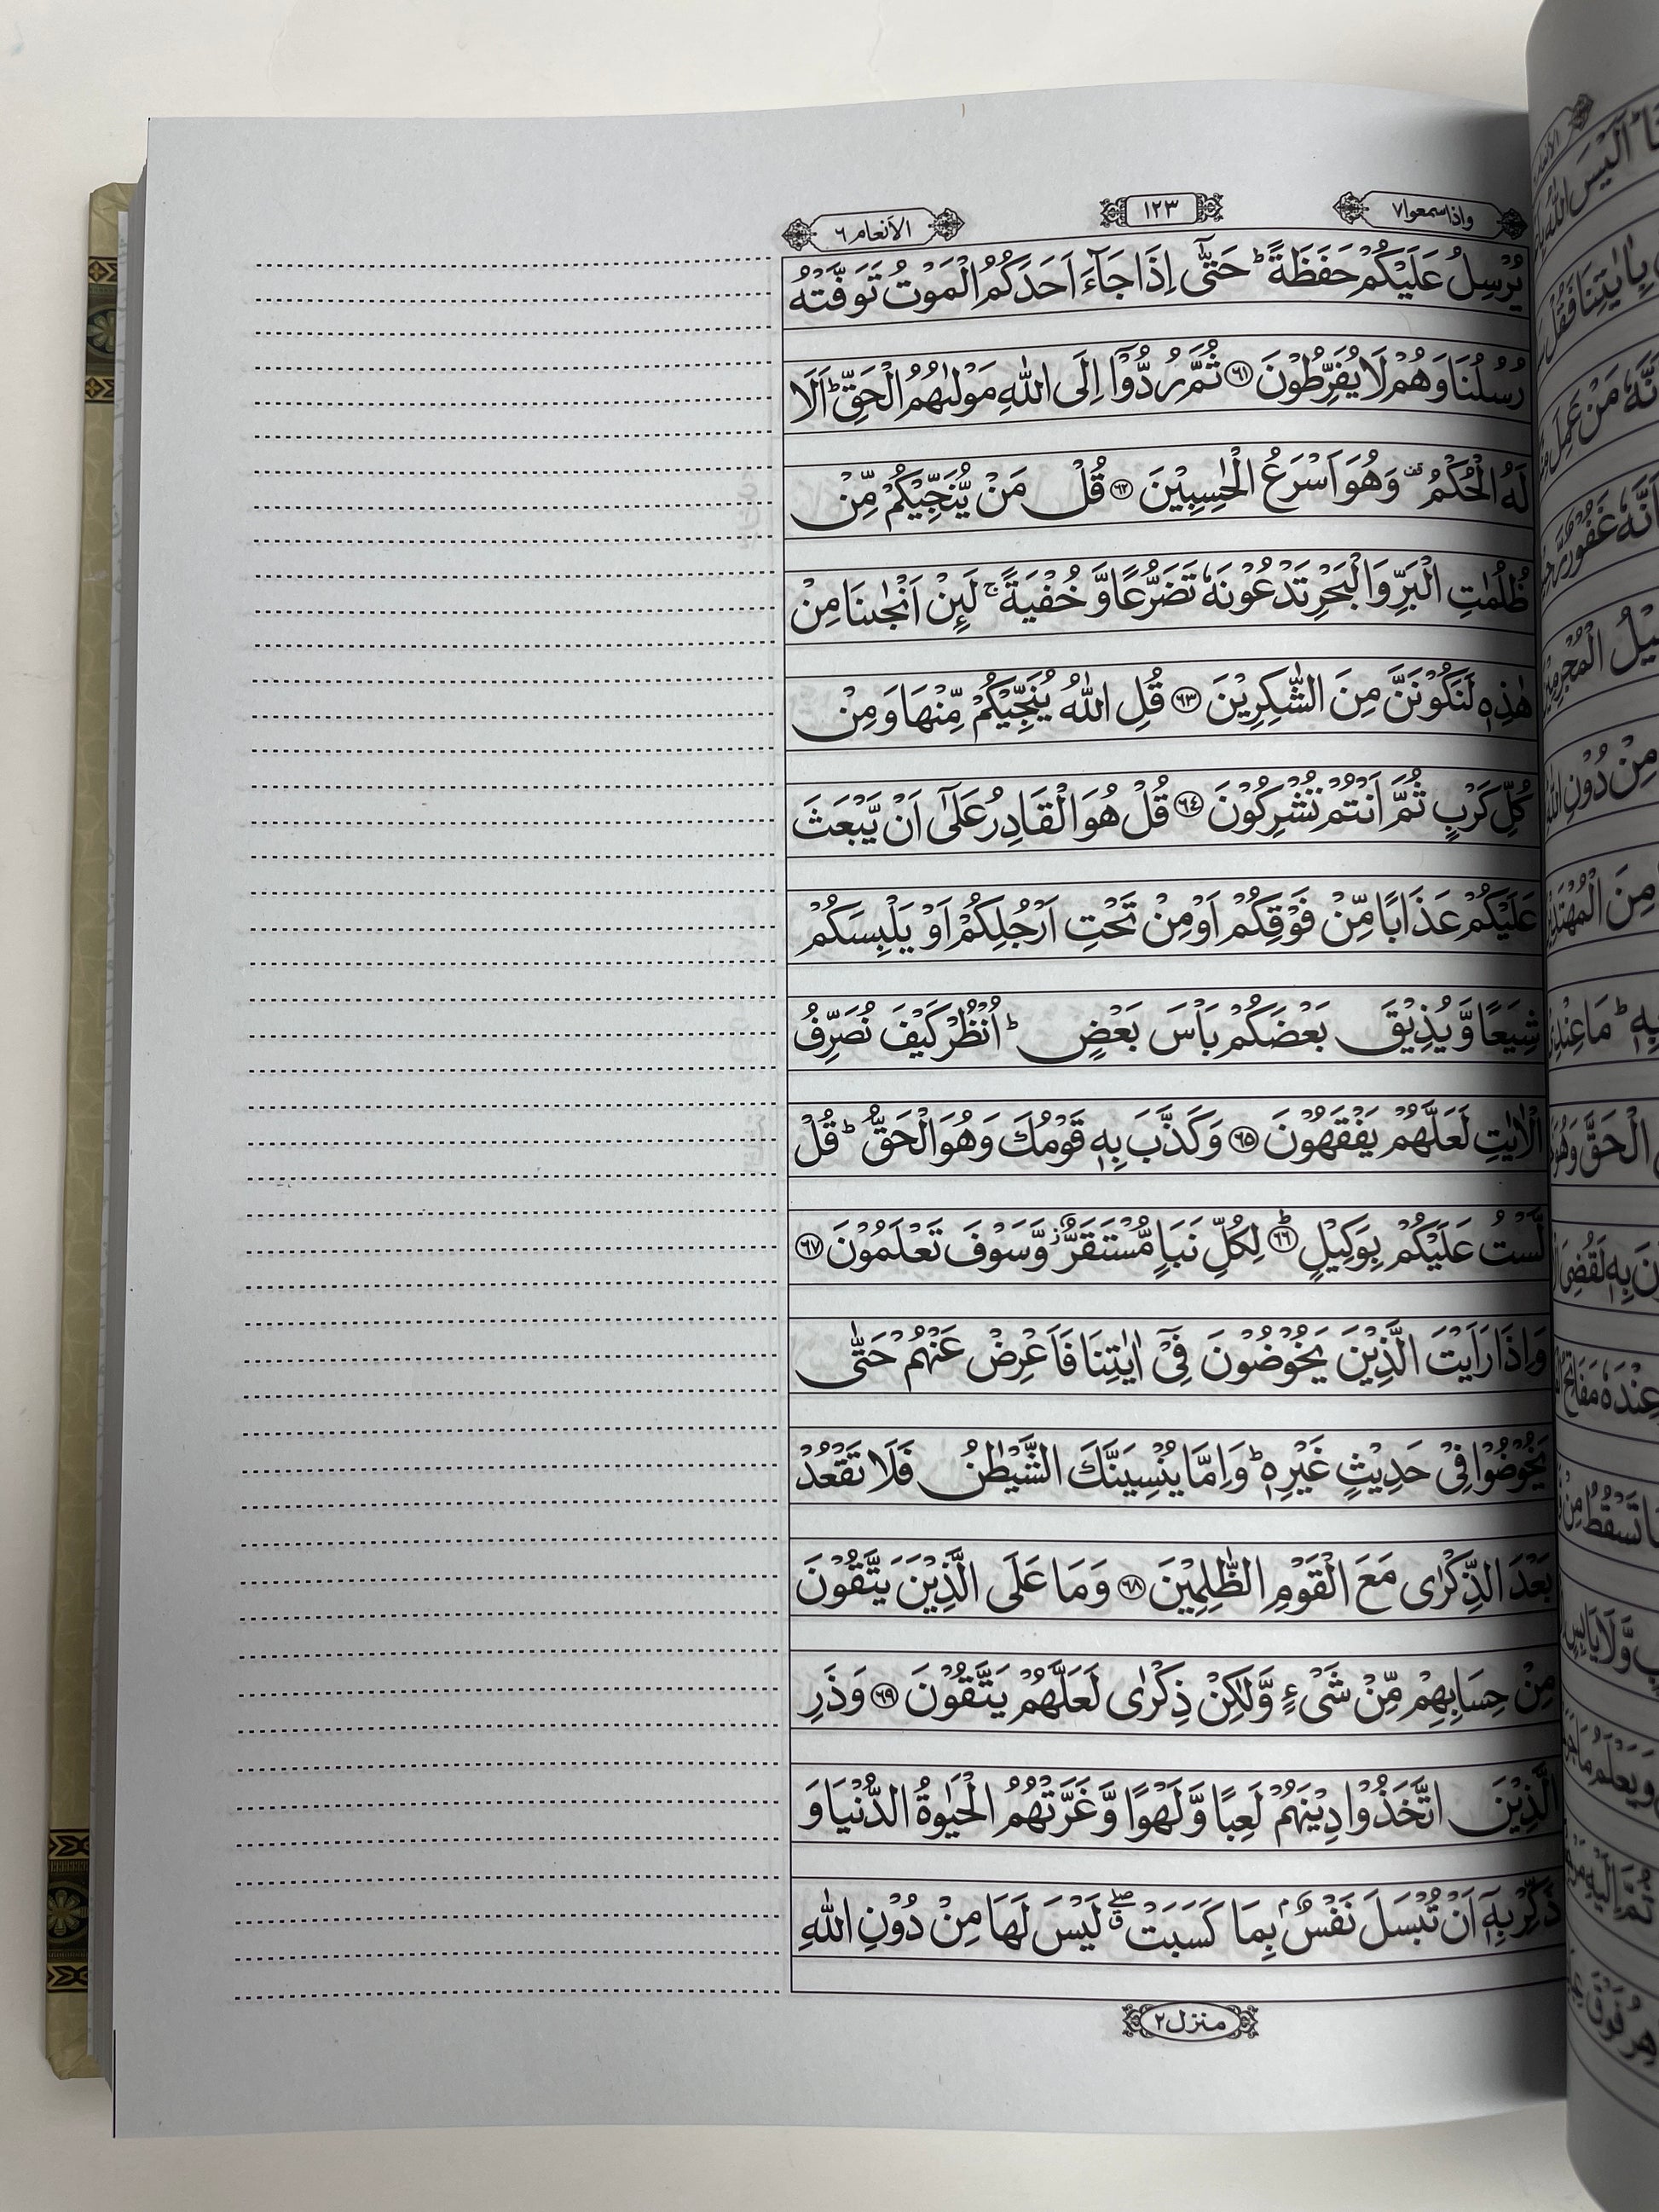 واذاسمعوا٧
١٢٣
الانعام ٦
يُرْسِلُ عَلَيْكُمْ حَفَظَةً ؕ حَتّٰۤى اِذَا جَآءَ اَحَدَكُمُ الْمَوْتُ تَوَفَّتْهُ
رُسُلُنَا وَهُمْ لَا يُفَرِّطُوْنَ ﴿٦١﴾ ثُمَّ رُدُّوْۤا اِلَى اللّٰهِ مَوْلٰىهُمُ الْحَقِّ ؕ اَلَا
لَهُ الْحُكْمُ ࣞ وَهُوَ اَسْرَعُ الْحٰسِبِيْنَ ﴿٦٢﴾ قُلْ مَنْ يُّنَجِّيْكُمْ مِّنْ
ظُلُمٰتِ الْبَرِّ وَالْبَحْرِ تَدْعُوْنَهٗ تَضَرُّعًا وَّ خُفْيَةً ۚ لَىِٕنْ اَنْجٰىنَا مِنْ
هٰذِهٖ لَنَكُوْنَنَّ مِنَ الشّٰكِرِيْنَ ﴿٦٣﴾ قُلِ اللّٰهُ يُنَجِّيْكُمْ مِّنْهَا وَ مِنْ
كُلِّ كَرْبٍ ثُمَّ اَنْتُمْ تُشْرِكُوْنَ ﴿٦٤﴾ قُلْ هُوَ الْقَادِرُ عَلٰۤى اَنْ يَّبْعَثَ
عَلَيْكُمْ عَذَابًا مِّنْ فَوْقِكُمْ اَوْ مِنْ تَحْتِ اَرْجُلِكُمْ اَوْ يَلْبِسَكُمْ
شِيَعًا وَّ يُذِيْقَ بَعْضَكُمْ بَاْسَ بَعْضٍ ؕ اُنْظُرْ كَيْفَ نُصَرِّفُ
الْاٰيٰتِ لَعَلَّهُمْ يَفْقَهُوْنَ ﴿٦٥﴾ وَ كَذَّبَ بِهٖ قَوْمُكَ وَ هُوَ الْحَقُّ ؕ قُلْ
لَّسْتُ عَلَيْكُمْ بِوَكِيْلٍ ؕ﴿٦٦﴾ لِكُلِّ نَبَاٍ مُّسْتَقَرٌّ ؗ وَّ سَوْفَ تَعْلَمُوْنَ ﴿٦٧﴾
وَ اِذَا رَاَيْتَ الَّذِيْنَ يَخُوْضُوْنَ فِيْۤ اٰيٰتِنَا فَاَعْرِضْ عَنْهُمْ حَتّٰى
يَخُوْضُوْا فِيْ حَدِيْثٍ غَيْرِهٖ ؕ وَ اِمَّا يُنْسِيَنَّكَ الشَّيْطٰنُ فَلَا تَقْعُدْ
بَعْدَ الذِّكْرٰى مَعَ الْقَوْمِ الظّٰلِمِيْنَ ﴿٦٨﴾ وَ مَا عَلَى الَّذِيْنَ يَتَّقُوْنَ
مِنْ حِسَابِهِمْ مِّنْ شَيْءٍ وَّ لٰكِنْ ذِكْرٰى لَعَلَّهُمْ يَتَّقُوْنَ ﴿٦٩﴾ وَ ذَرِ
الَّذِيْنَ اتَّخَذُوْا دِيْنَهُمْ لَعِبًا وَّ لَهْوًا وَّ غَرَّتْهُمُ الْحَيٰوةُ الدُّنْيَا وَ
ذَكِّرْ بِهٖۤ اَنْ تُبْسَلَ نَفْسٌۢ بِمَا كَسَبَتْ ۖۗ لَيْسَ لَهَا مِنْ دُوْنِ اللّٰهِ
منزل ٢